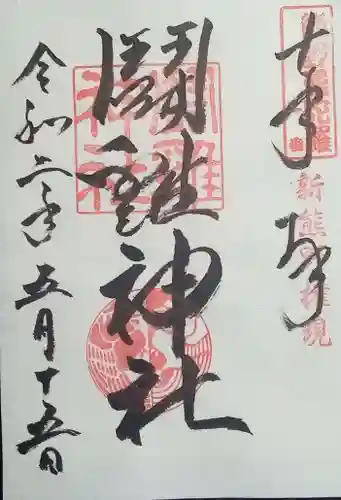 奉拝
新熊野権現
闘雞神社
闘雞神社
令和二年五月十五日